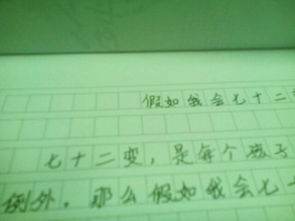 假如我会七十二
七十二变，是每个孩子
例外。那么假如我会七十